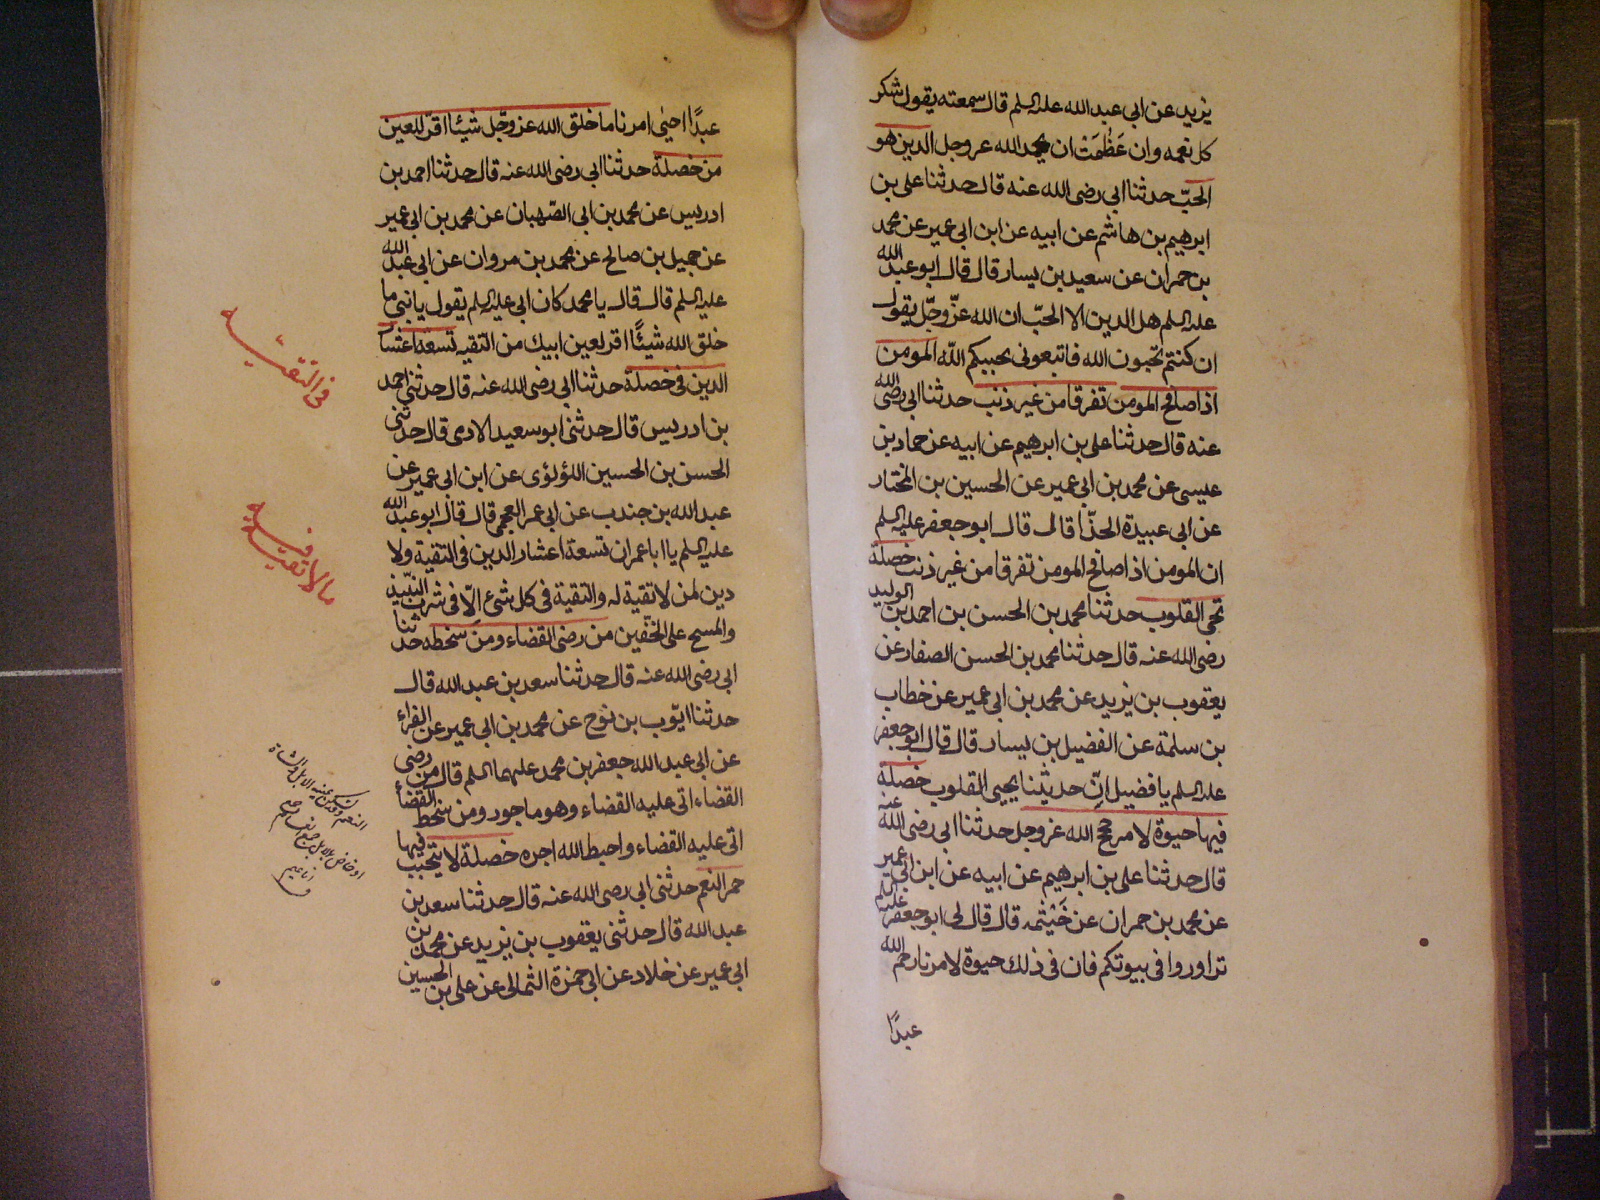 يزيد عن ابى عبد الله عليه السلم قال سمعته يقول شكر
كل نعمه وان عَظُمَتْ ان يحمد الله عز وجل الدين هو
الحبّ حدثنا ابى رضى الله عنه قال حدثنا على بن
ابرهيم بن هاشم عن ابيه عن ابن ابى عمير عن محمد
بن حمران عن سعيد بن يسار قال قال ابو عبد الله
عليه السلم هل الدين الا الحبّ ان الله عزّ وجلّ يقول
ان كنتم تحبون الله فاتبعونى يحببكم الله المومن
اذا صافح المومن تفرقا من غير ذنب حدثنا ابى رضى الله
عنه قال حدثنا على بن ابرهيم عن ابيه عن حماد بن
عيسى عن محمد بن ابى عمير عن الحسين بن المختار
عن ابى عبيدة الحذّا قال قال ابو جعفر عليه السلم
ان المومن اذا صافح المومن تفرقا من غير ذنب خصلة
تحى القلوب حدثنا محمد بن الحسن بن احمد بن الوليد
رضى الله عنه قال حدثنا محمد بن الحسن الصفار عن
يعقوب بن يزيد عن محمد بن ابى عمير عن خطاب
بن سلمة عن الفضيل بن يسار قال قال ابو جعفر
عليه السلم يا فضيل انّ حديثنا يحيى القلوب خصلة
فيها حيوة لامر حجج الله عز وجل حدثنا ابى رضى الله عنه
قال حدثنا على بن ابرهيم عن ابيه عن ابن ابى عمير
عن محمد بن حمران عن خَيْثمه قال قال لى ابو جعفر عليه السلم
تزاوروا فى بيوتكم فان فى ذلك حيوة لامرنا رحم الله
عبدًا
عبدًا احيٰى امرنا ما خلق الله عز وجّل شيئًا اقرّ للعين
من خصلة حدثنا ابى رضى الله عنه قال حدثنا احمد بن
ادريس عن محمد بن ابى الصّهبان عن محمد بن ابى عمير
عن جميل بن صالح عن محمد بن مروان عن ابى عبد الله
عليه السلم قال قال يا محمد كان ابى عليه السلم يقول يا بنى ما
خلق الله شيئًا اقر لعين ابيك من التقيه تسعة اعشار
الدين فى خصلة حدثنا ابى رضى الله عنه قال حدثنى احمد
بن ادريس قال حدثنى ابو سعيد الادمى قال حدثنى
الحسن بن الحسين اللؤلؤى عن ابن ابى عمير عن
عبد الله بن جندب عن ابى عمر العجمى قال قال ابو عبد الله
عليه السلم يا ابا عمران تسعة اعشار الدين فى التقية ولا
دين لمن لا تقية له والتقية فى كل شئ الّا فى شرب النّبيذ
والمسح على الخفين من رضى القضاء ومن سخطه حدثنا
ابى رضى الله عنه قال حدثنا سعد بن عبد الله قال
حدثنا ايّوب بن نوح عن محمد بن ابى عمير عن الفراء
عن ابى عبد الله جعفر بن محمد عليهما السلم قال من رضى
القضاء اتى عليه القضاء وهو ماجور ومن سخط القضاء
اتى عليه القضاء واحبط الله اجره خصلة لا يتجبب فيها
حمر النعم حدثنى ابى رضى الله عنه قال حدثنا سعد بن
عبد الله قال حدثنى يعقوب بن يزيد عن محمد بن
ابى عمير عن خلاد عن ابى حمزة الثمالى عن على بن الحسين
فى التقيّه
ما لا تقية فيه